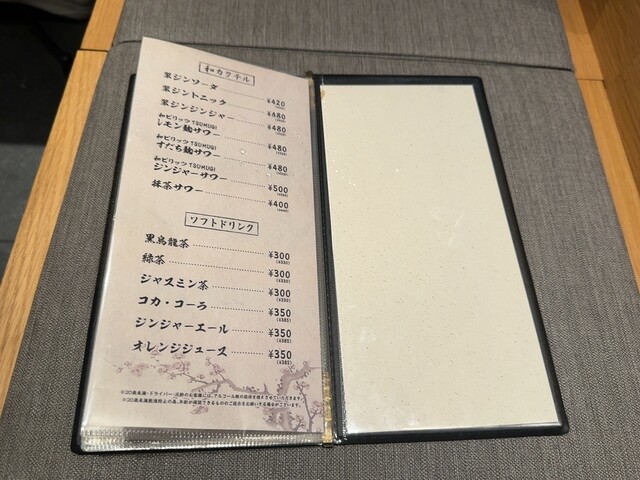 和カクテル
翠ジンソーダ ¥420
翠ジントニック ¥480
翠ジンジンジャー ¥480
和ピリッツTSUMUGI
レモン麹サワー ¥480
和ピリッツTSUMUGI
すだち麹サワー ¥480
和ピリッツTSUMUGI
ジンジャーサワー ¥500
抹茶サワー ¥400
ソフトドリンク
黒烏龍茶 ¥300
(¥330)
緑茶 ¥300
(¥330)
ジャスミン茶 ¥300
(¥330)
コカ・コーラ ¥350
(¥385)
ジンジャーエール ¥350
(¥385)
オレンジジュース ¥350
(¥385)
※20歳未満・ドライバー・